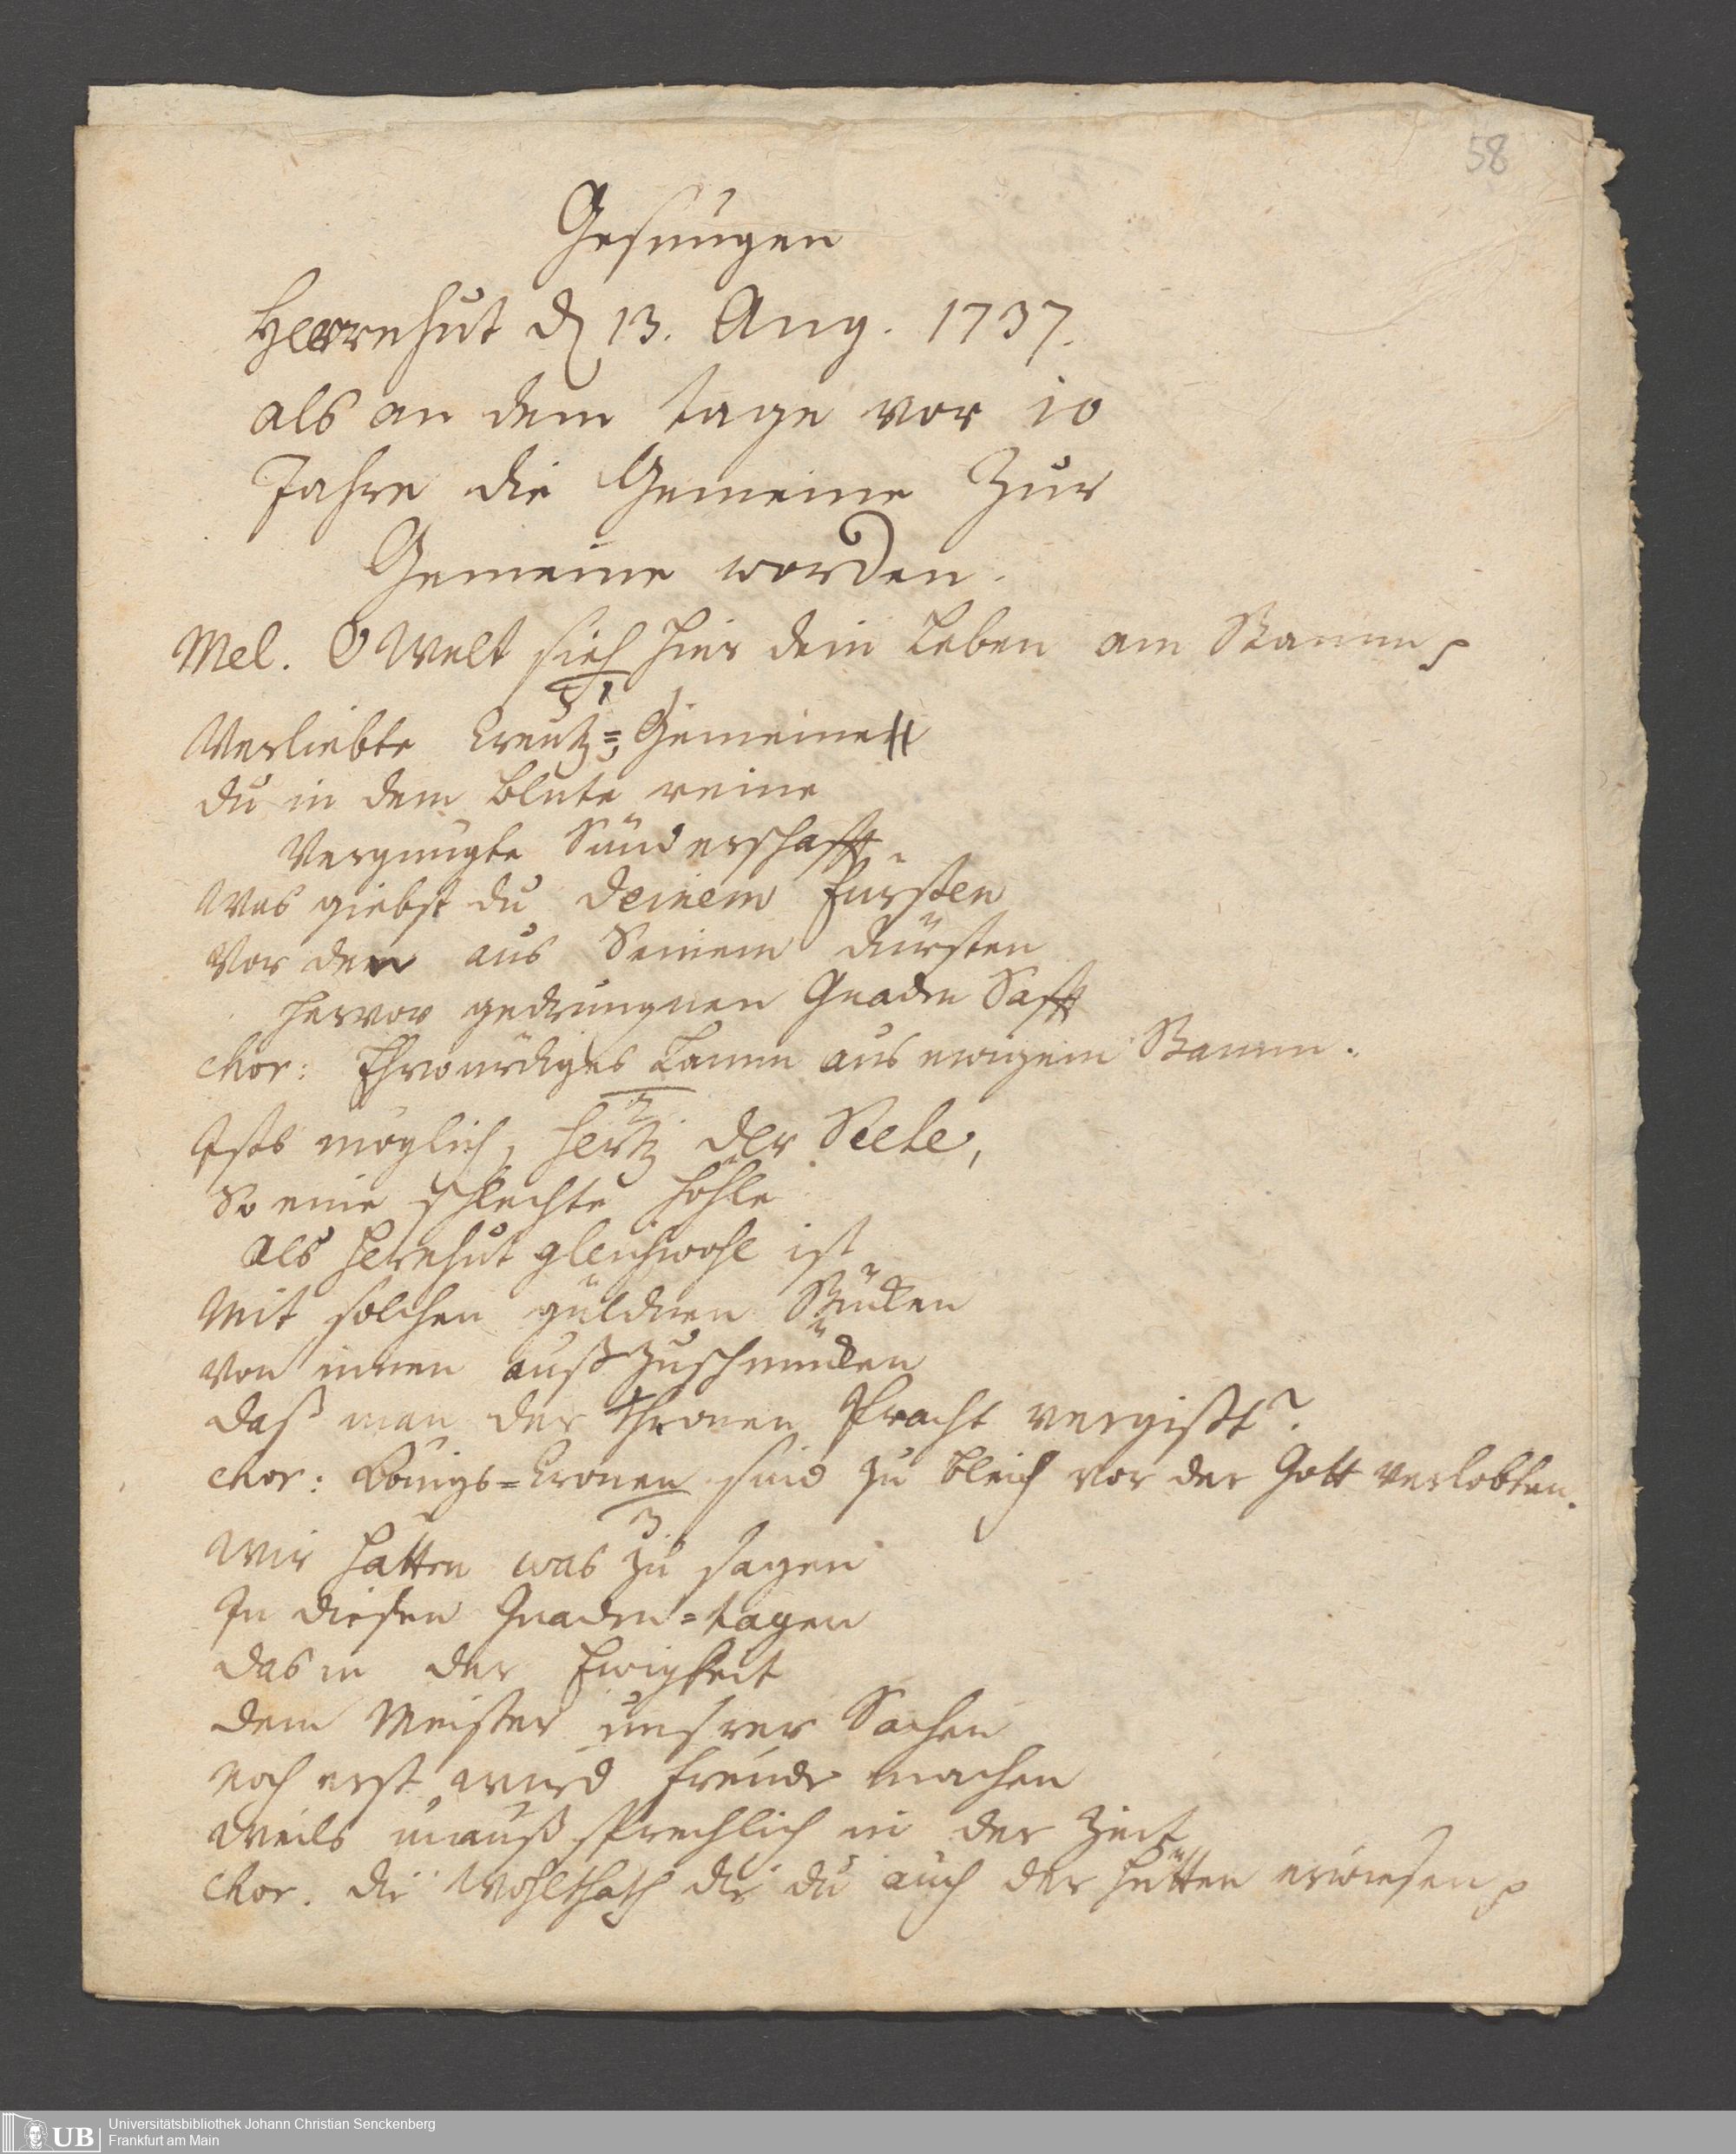 58
Gesungen
Herrnhut d 13. Aug. 1737.
als an dem tage vor 10
Jahre die Gemeine Zur
Gemeine worden.
Mel. O Welt sieh hier dein Leben am Stamm
1
Verliebte Creutz=Gemeine
du in dem blute reine
Vergnügte Sünderschafft
Was giebst du deinem Fürsten
Vor den aus Seinem dürsten
hervor gedrungnen Gnaden Safft
Chor: Ehrwürdiges Lamm aus ewigem Stamm.
2
Ists möglich, hertz der Seele,
So eine schlechte Höhle
als Herrnhut gleichwohl ist
Mit solchen güldnen Stücken
von innen außzuschmücken
daß man der Thronen Pracht vergißt?
Chor: Königs=Cronen sind zu bleich vor der Gott verlobten.
3
Wir hätten was zu sagen
In diesen Gnaden=tagen
das in der Ewigkeit
dem Meister unsrer Sachen
noch erst wird Freude machen
weils unaußsprechlich in der Zeit
Chor. die Wohlthath die du auch der Hütten erwiesen
UB
Universitätsbibliothek Johann Christian Senckenberg
Frankfurt am Main